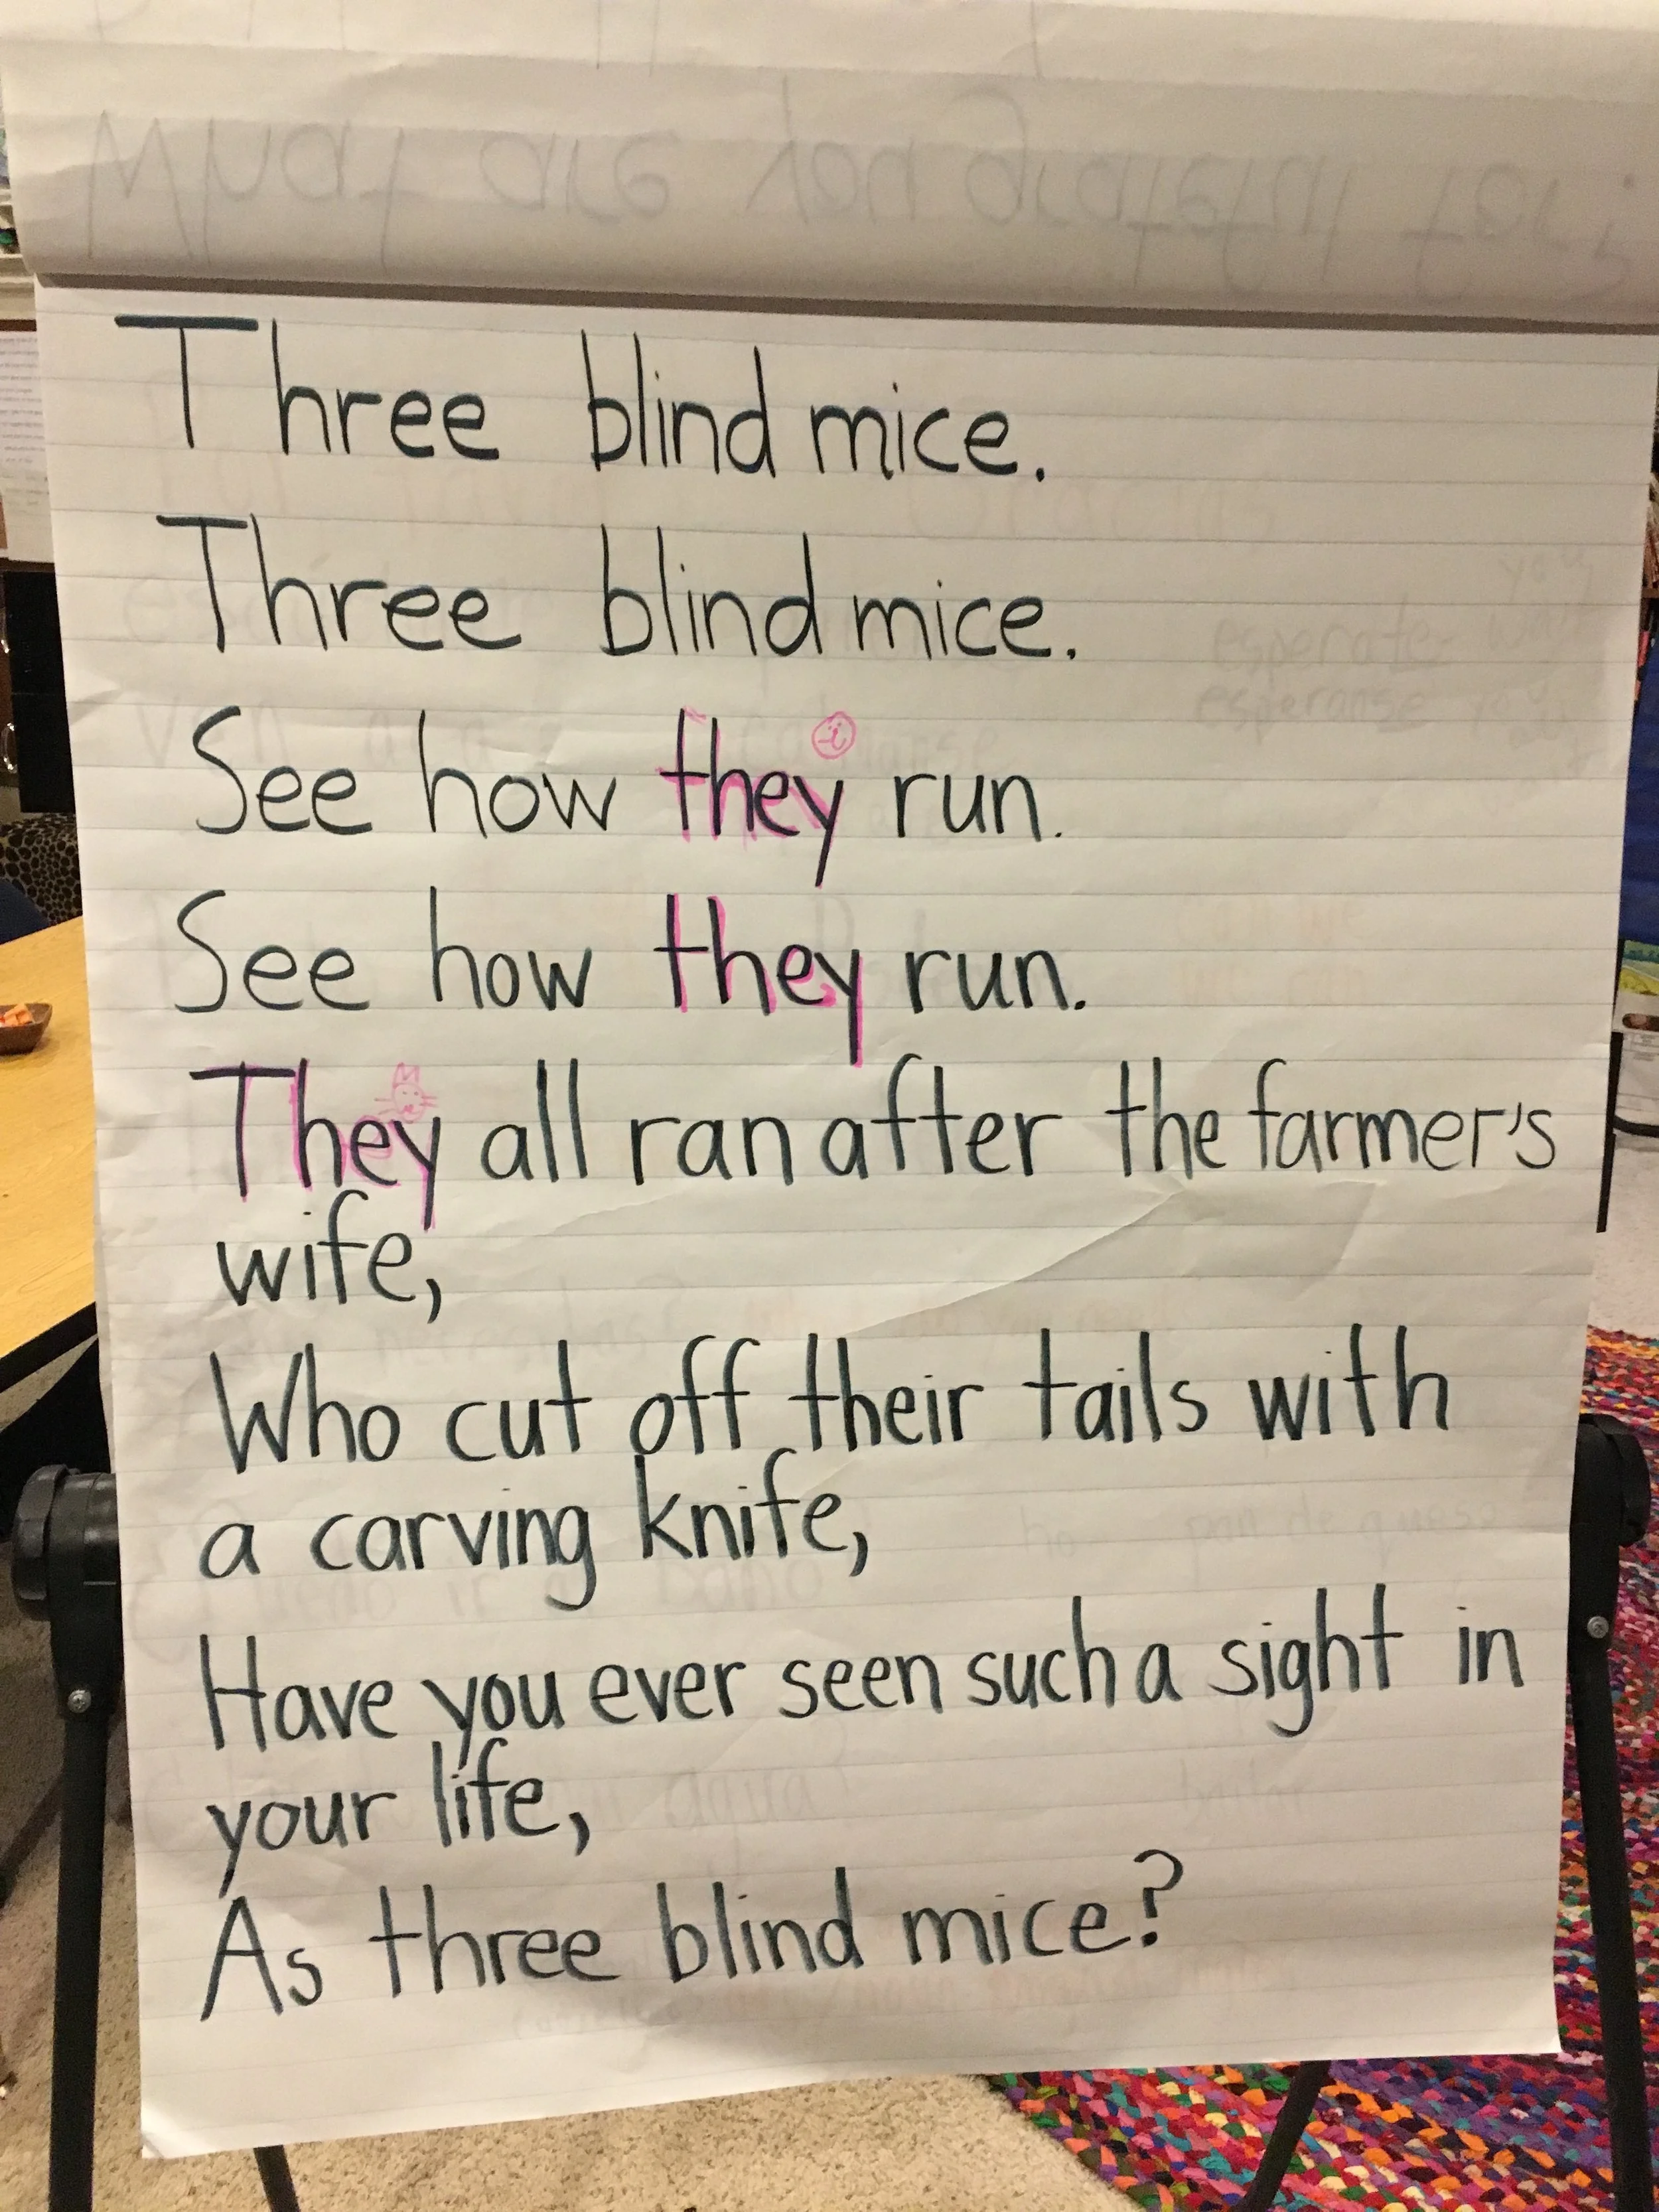 What are you grateful for?
Three blind mice.
Three blind mice.
See how they run.
See how they run.
They all ran after the farmer's
wife,
Who cut off their tails with
a carving knife,
Have you ever seen such a sight in
your life,
As three blind mice?